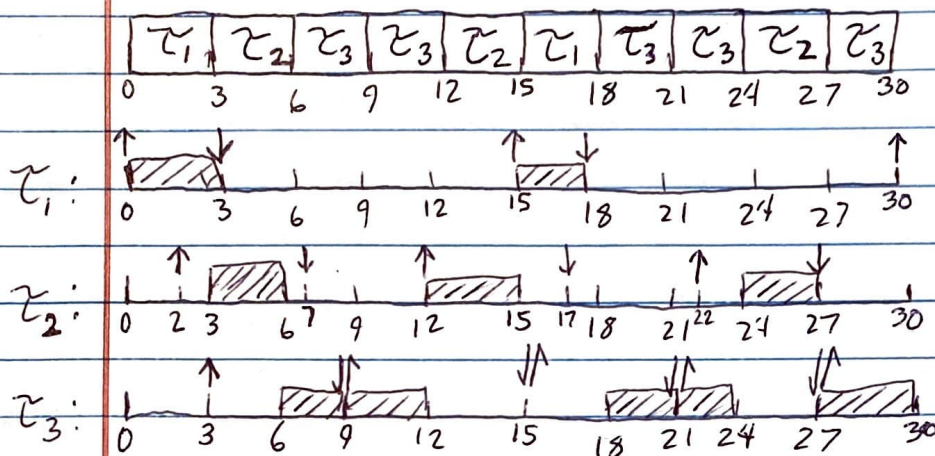 τ1 τ2 τ3 τ3 τ2 τ1 τ3 τ3 τ2 τ3
0 3 6 9 12 15 18 21 24 27 30
τ1:
0 3 6 9 12 15 18 21 24 27 30
τ2:
0 2 3 6 7 9 12 15 17 18 21 22 24 27 30
τ3:
0 3 6 9 12 15 18 21 24 27 30